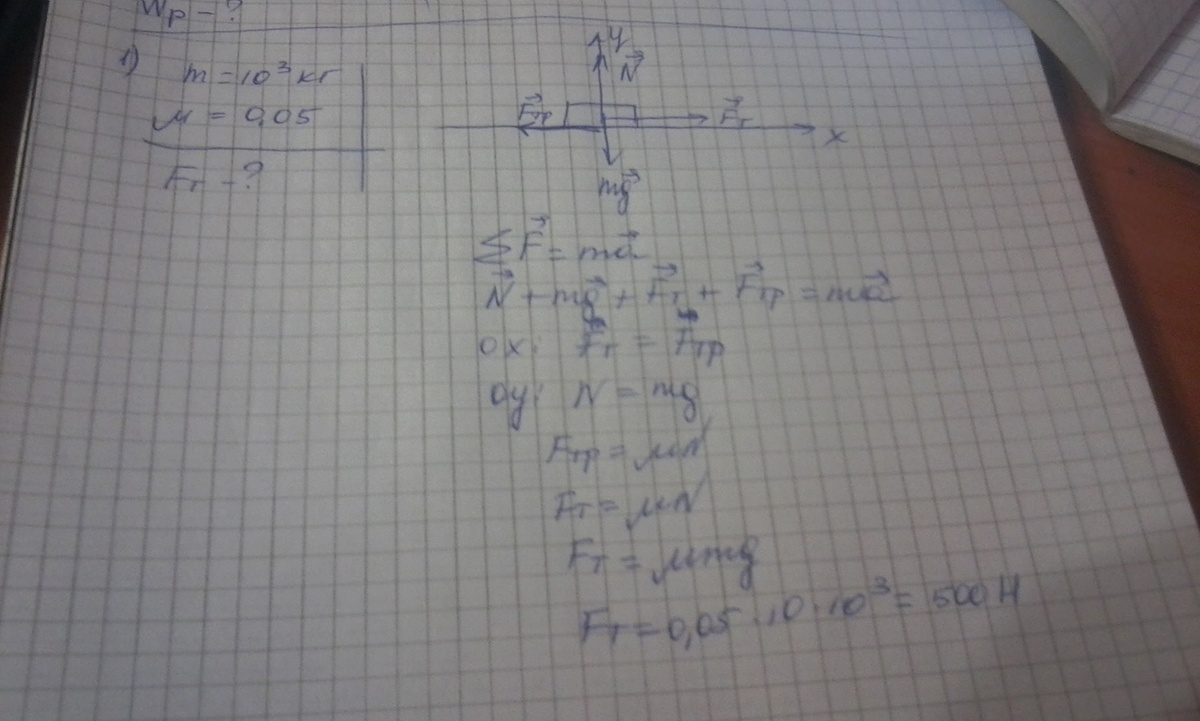 Wp - ?
1)
m = 10³ кг
μ = 0,05
Fт - ?
y
N⃗
F⃗тр
F⃗т
x
mg⃗
ΣF⃗ = ma⃗
N⃗ + mg⃗ + F⃗т + F⃗тр = ma⃗
ox: Fт = Fтр
oy: N = mg
Fтр = μN
Fт = μN
Fт = μmg
Fт = 0,05 · 10 · 10³ = 500 Н